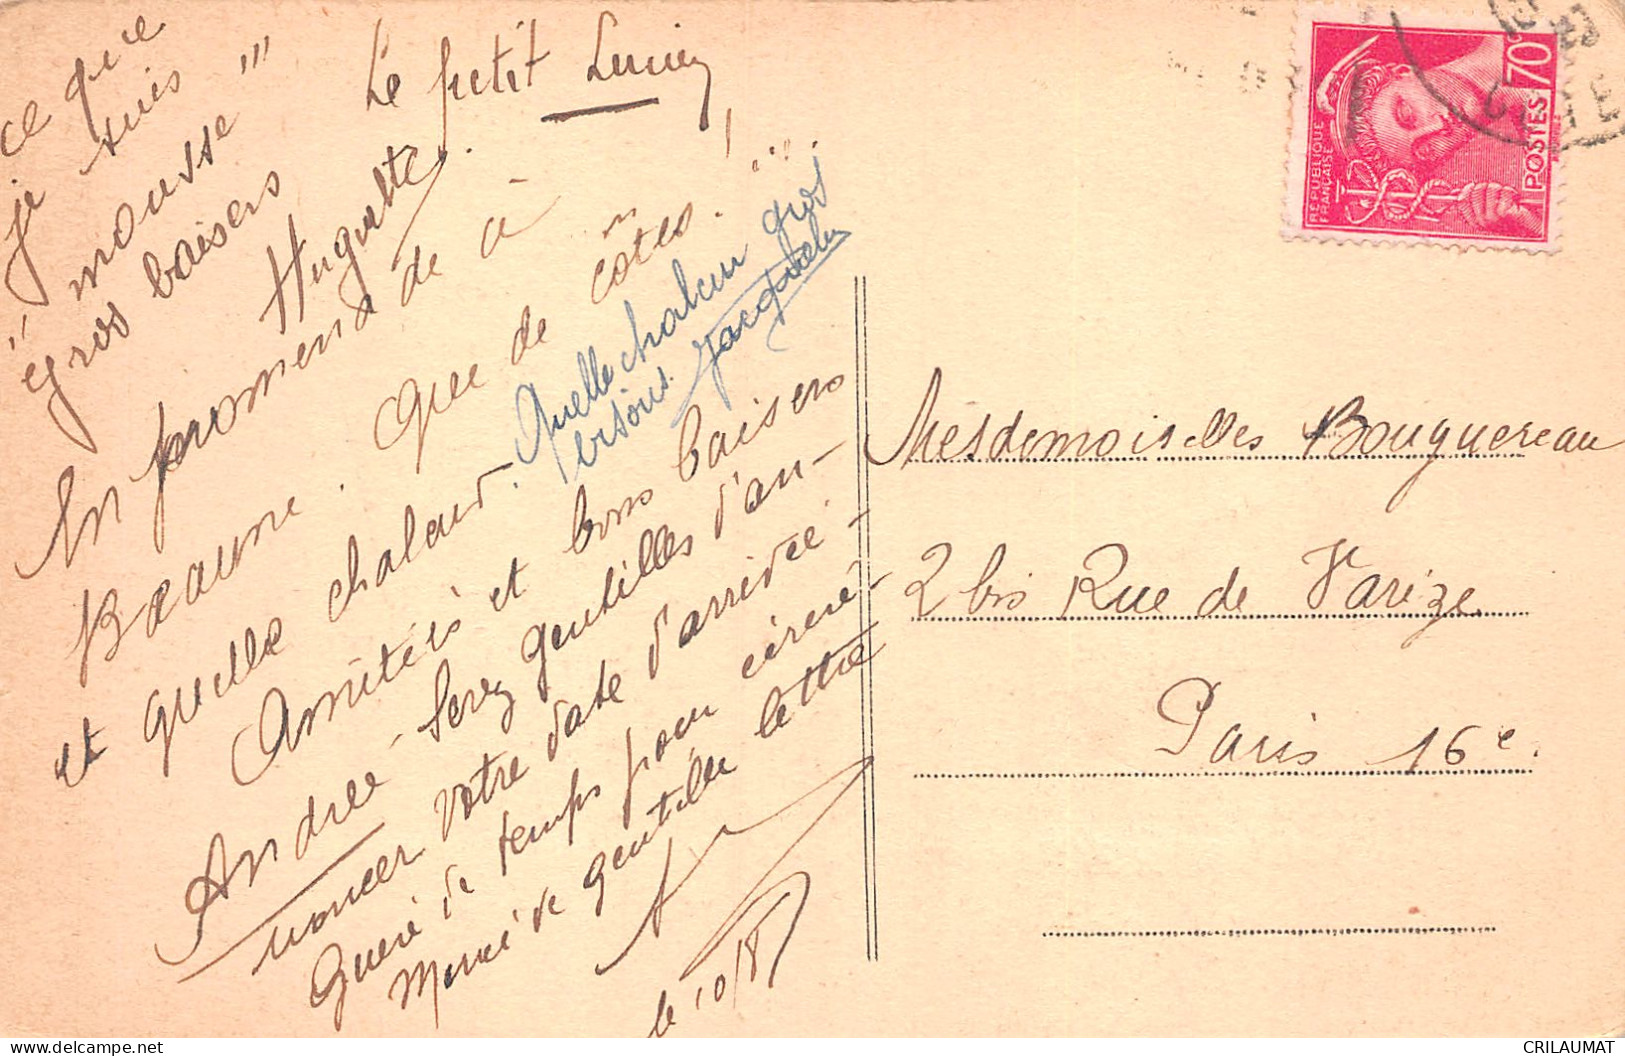 ce que
je suis
" mousse "'"
gros baisers
Le petit Lucien
Huguette.
En promenade à
Beaune. Que de côtes!
et quelle chaleur.
Quelle chaleur gros
bisous. Jacqueline
Amitiés et bons baisers
Andrée - Serez gentilles d'an-
noncer votre date d'arrivée -
Guère de temps pour écrire -
Merci de gentille lettre
le 10/8
Mesdemoiselles Bouguereau
2 bis Rue de Varize
Paris 16e.
REPUBLIQUE
FRANÇAISE
POSTES
70c
CRILAUMAT